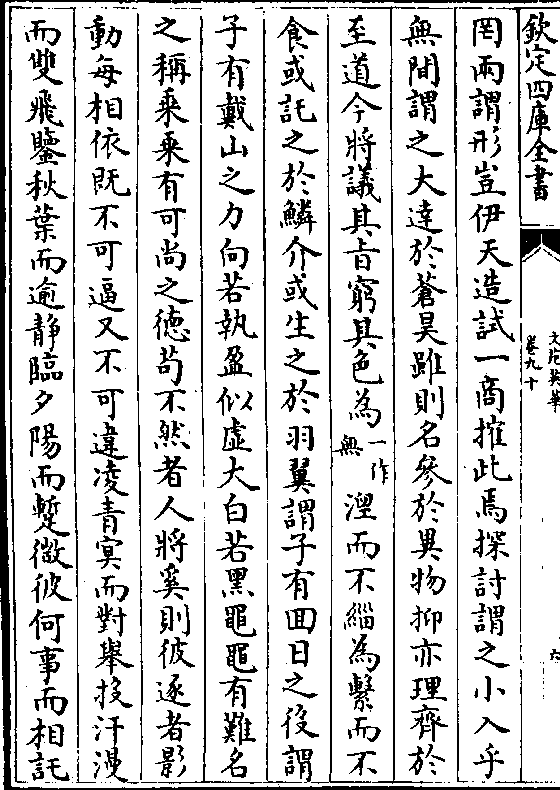 欽定四庫全書
文苑英華
卷九十
六
罔兩謂形豈伊天造試一商搉此焉探討謂之小入乎
無間謂之大達於蒼昊雖則名參於異物抑亦理齊於
至道今將議其旨窮其色為一作無湼而不緇為繫而不
食或託之於鱗介或生之於羽翼謂子有回日之役謂
子有戴山之力向若執盈似虛大白若黑黽黽有難名
之稱乘乘有可尚之德苟不然者人將奚則彼逐者影
動每相依既不可逼又不可違凌青冥而對舉投汗漫
而雙飛鑒秋葉而逾静臨夕陽而蹔微彼何事而相託